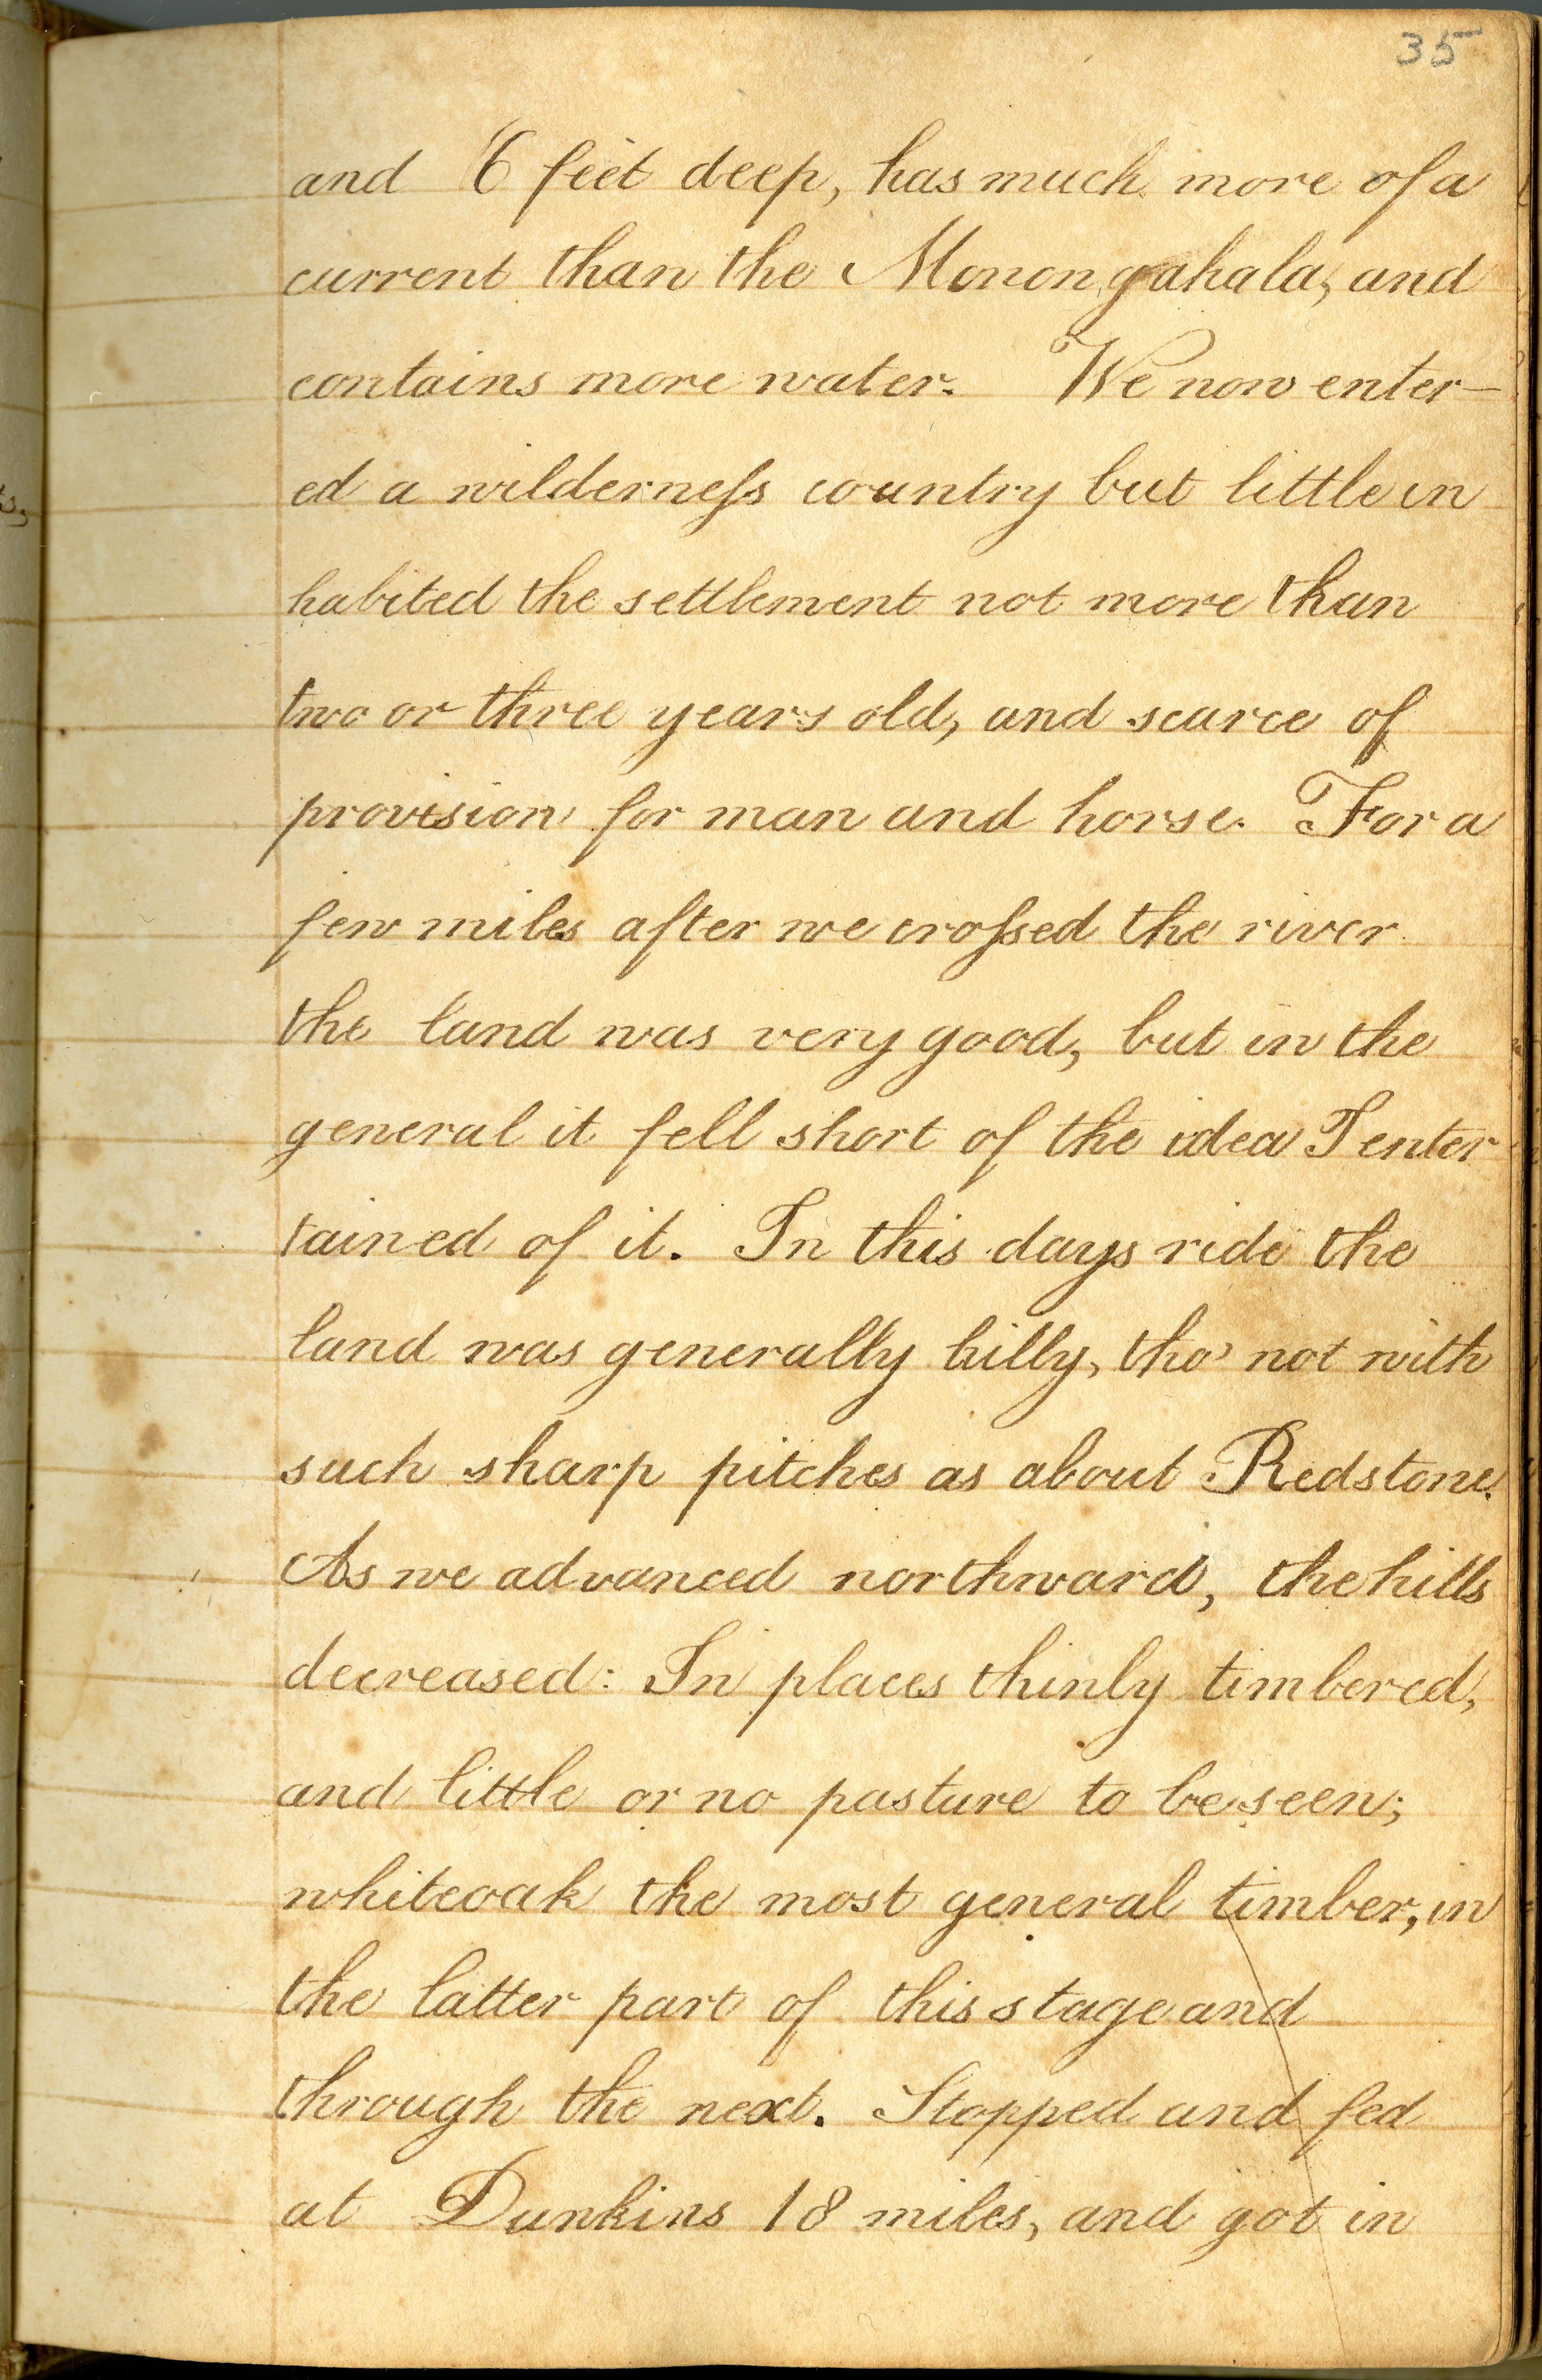 35
and 6 feet deep, has much more of a
current than the Monongahala, and
contains more water. We now enter-
ed a wilderness country but little in
habited the settlement not more than
two or three years old, and scarce of
provision for man and horse. For a
few miles after we crossed the river
the land was very good, but in the
general it fell short of the idea I enter
tained of it. In this days ride the
land was generally hilly, tho' not with
such sharp pitches as about Redstone.
As we advanced northward, the hills
decreased: In places thinly timbered,
and little or no pasture to be seen;
whiteoak the most general timber, in
the latter part of this stage and
through the next. Stopped and fed
at Dunkins 18 miles, and got in